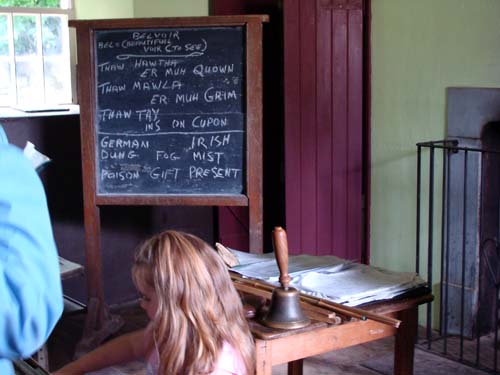 BELVOIR
BEL = (BEAUTIFUL
VOIR (TO SEE)
THAW HAWTHA
ER MUH QUOWN
THAW MAWLA
ER MUH GRIM
THAW TAY
INS ON CUPON
GERMAN IRISH
DUNG FOG MIST
POISON GIFT PRESENT